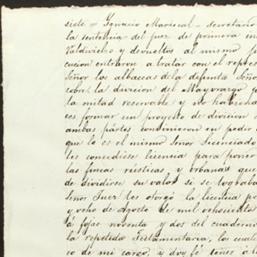 side = Ignacio Mariscal = secretario
la sentencia del juez de primera in
Valdivielso y devueltos al mismo j
cucion entraron a tratar con el repres
Señor los albaceas de la defunta Señ
sobre la division del Mayorazgo p
la mitad reservable y no habiend
ces formar un proyecto de division
ambas partes convinieron en pedir
que lo es el mismo Señor Licenciado
les concediese licencia para poner
las fincas rústicas, y urbanas que
de dividirse su valor si se lograba
Señor Juez les otorgó la licencia p
y ocho de Agosto de mil ochocientos
á fojas noventa y dos del cuaderno
la repetida Testamentaria, lo cual
co de mi cargo, y doy fé tener á l